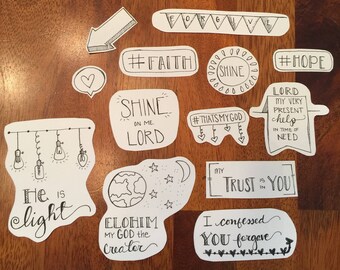 FORGIVE
#FAITH
SHINE
#HOPE
SHINE
ON ME
LORD
#THATSMYGOD
LORD
MY VERY
PRESENT
help
IN TIME OF
NEED
He is
light
ELOHIM
MY GOD THE
Creator
MY
TRUST IS IN YOU
I confessed
YOU forgave